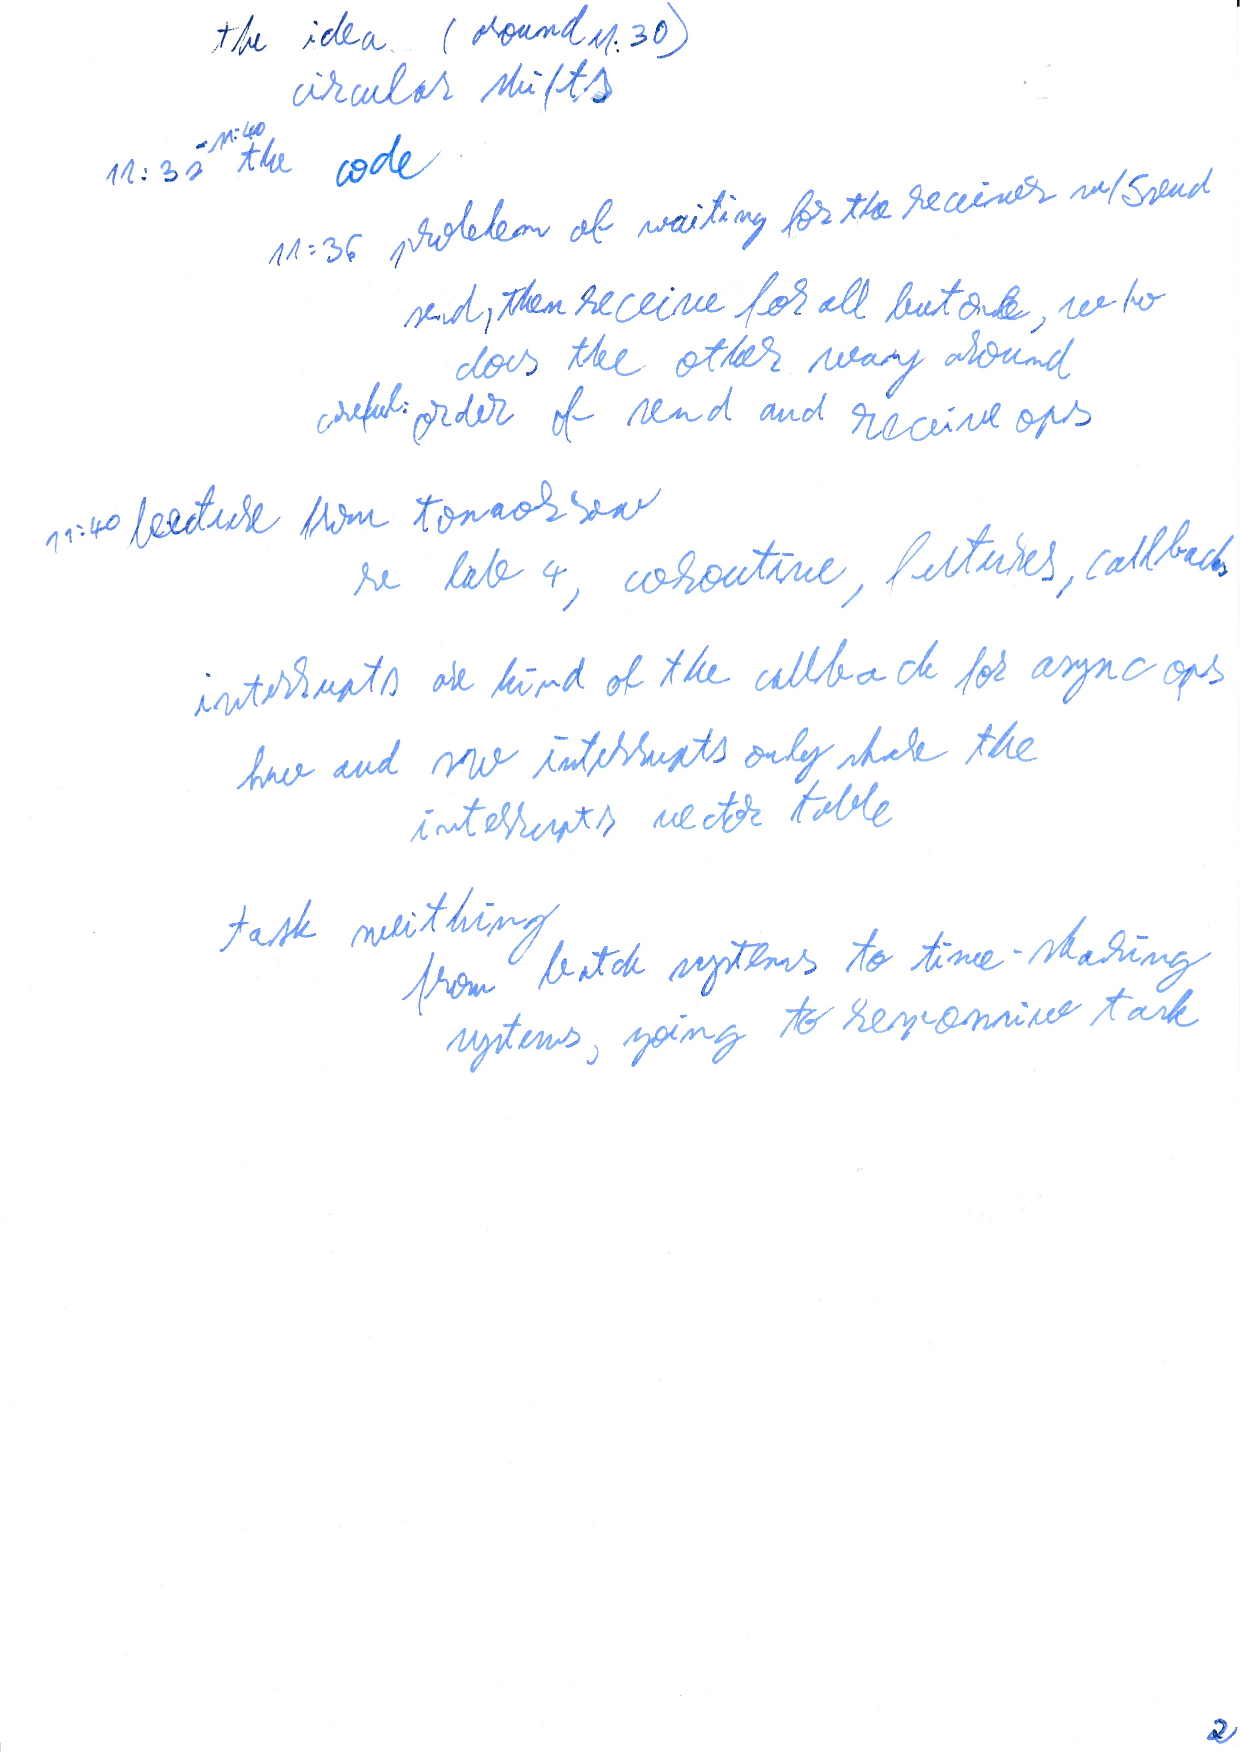 the idea (around 11:30)
circular shifts
11:33 - 11:40 the code
11:36 problem of waiting for the receiver w/ Ssend
send, then receive for all but one, who
does the other way around
careful: order of send and receive ops
11:40 lecture from tomorrow
re lab 4, coroutine, futures, callbacks
interrupts are kind of the callback for async ops
hw and sw interrupts only share the
interrupts vector table
task switching
from batch systems to time-sharing
systems, going to responsive task
2